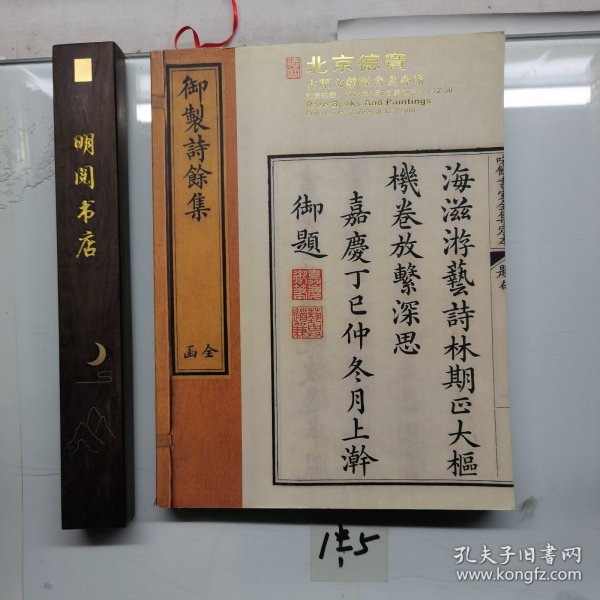 明阅书店
御製詩餘集
全函
北京德寶
古籍文獻暨書畫專場
Rare Books And Paintings
海滋游藝詩林期正大樞
機卷放繫深思
嘉慶丁巳仲冬月上澣
御題
1些5
孔夫子旧书网
www.kongfz.com